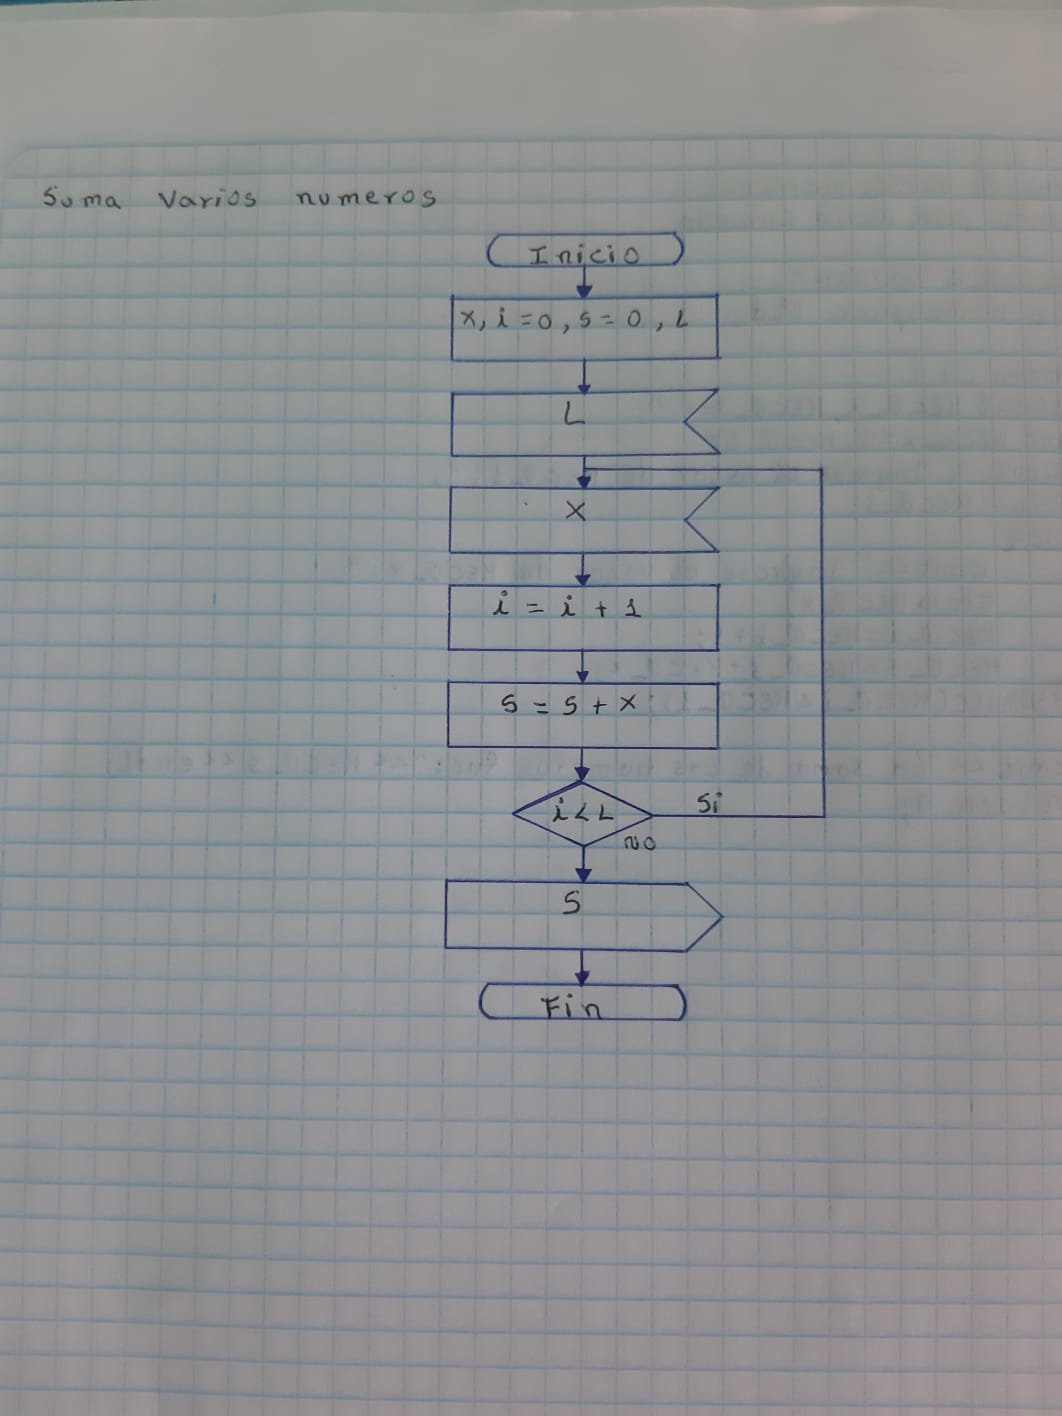 Suma varios numeros
Inicio
x, i=0, s=0, L
L
X
i = i + 1
s = s + x
i<L
Si
no
S
Fin